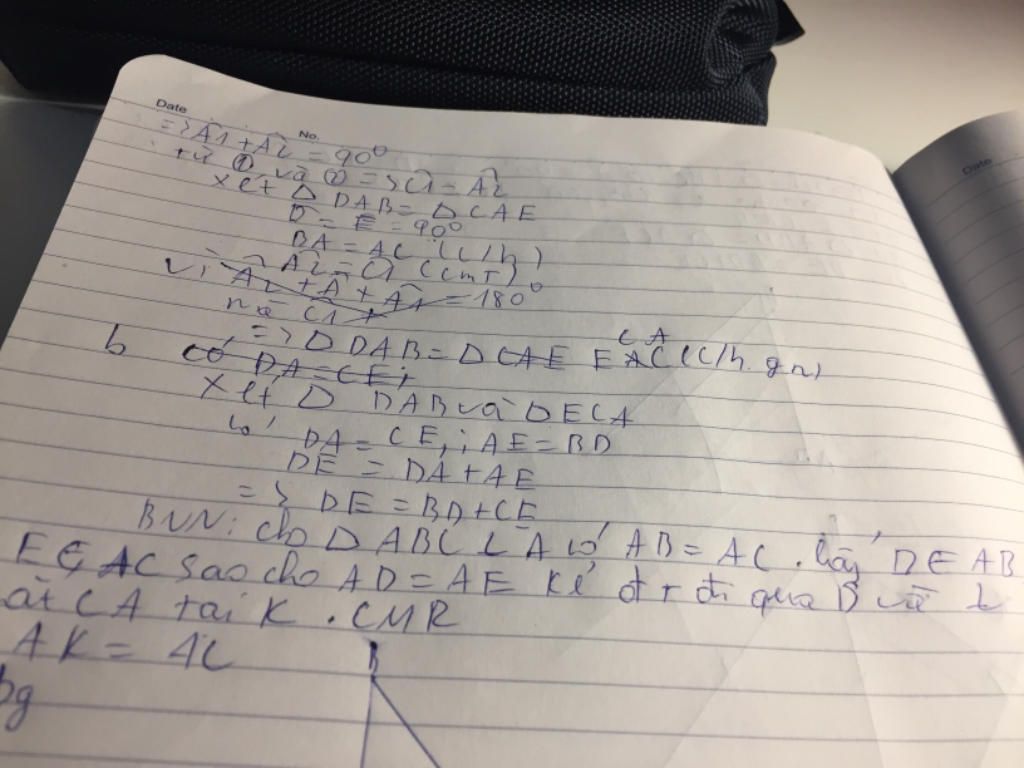 Date
No.
Date
=> Â1 + Â2 = 90°
từ ① và ② => Ĉ1 = Â2
Xét Δ DAB = Δ CAE
D̂ = Ê = 90°
BA = AC (c/h)
Â2 = Ĉ1 (cmT)
Vì Â2 + Â + Â1 = 180°
mà Ĉ1 +
CA
=> Δ DAB = Δ CAE EAC (C/h. gn)
b có DA = CE;
Xét Δ DAB và Δ ECA
có DA = CE; AE = BD
DE = DA + AE
=> DE = BD + CE
BVN: cho Δ ABC ⊥ A có AB = AC. lấy D ∈ AB
E ∈ AC sao cho AD = AE kẻ đt đi qua D và ⊥
ắt CA tại K. CMR
AK = AC
B
bg